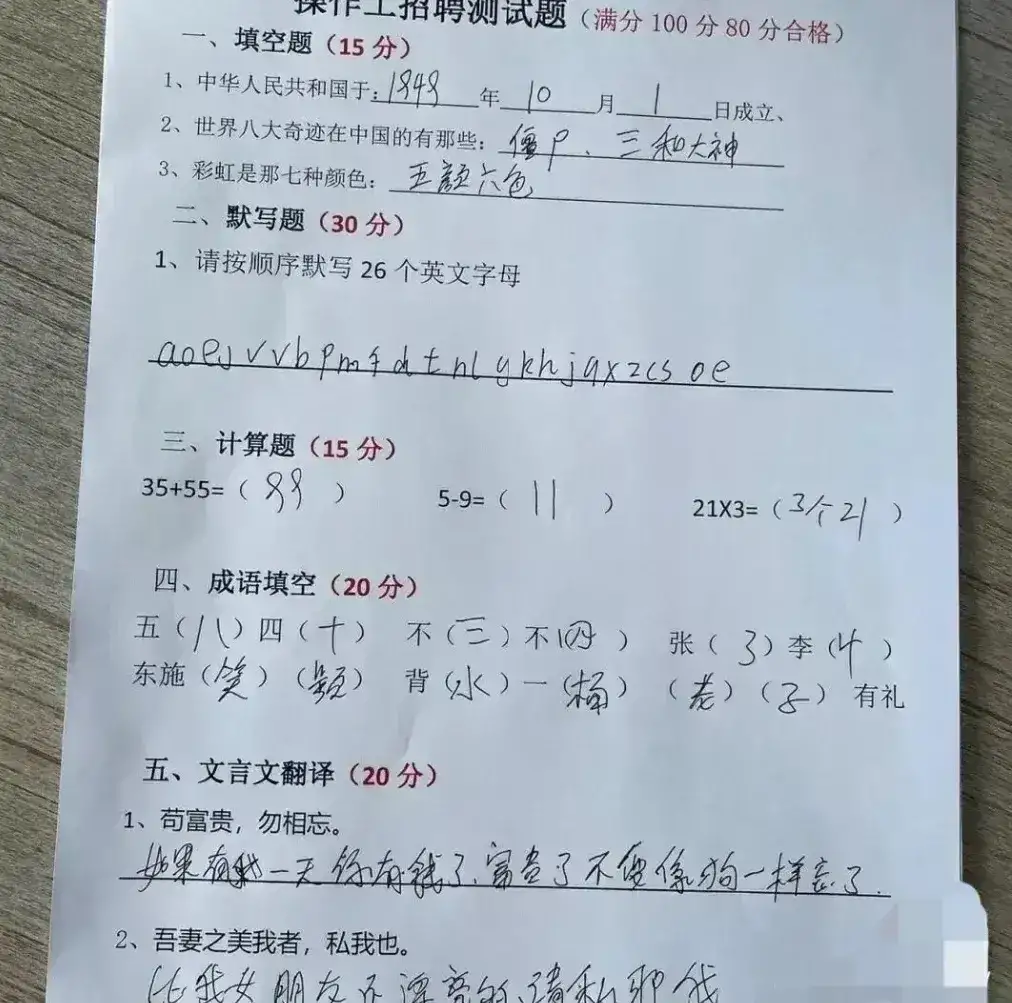 操作工招聘测试题（满分 100 分 80 分合格）
一、填空题（15 分）
1、中华人民共和国于：1949 年 10 月 1 日成立、
2、世界八大奇迹在中国的有那些：僵尸、三和大神
3、彩虹是那七种颜色：五颜六色
二、默写题（30 分）
1、请按顺序默写 26 个英文字母
aoeJvvbpmfdtnlgkhjqxzcsoe
三、计算题（15 分）
35+55=（99） 5-9=（11） 21X3=（3个21）
四、成语填空（20 分）
五（八）四（十） 不（三）不（四） 张（3）李（4）
东施（笑）（频） 背（水）一（桶） （老）（子）有礼
五、文言文翻译（20 分）
1、苟富贵，勿相忘。
如果有一天你有钱了、富贵了不要像狗一样忘了.
2、吾妻之美我者，私我也。
比我女朋友还漂亮的、请私聊我